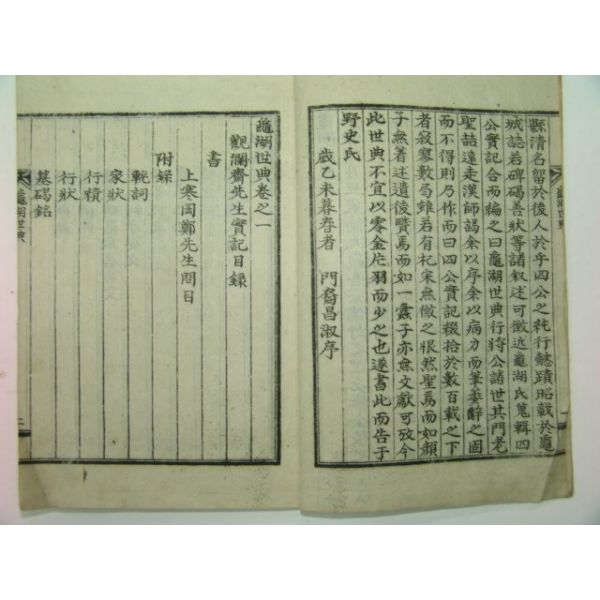 縣清名留於後人於乎四公之純行懿蹟昭載於龜
城誌若碑碣善狀等諸叙述可徵近龜湖氏蒐輯四
公實記合而編之曰龜湖世典行將公諸世其門老
聖喆遠走漢師謁余以序余以病力而筆萎辭之固
而不得則乃作而曰四公實記掇拾於數百載之下
者寂寥數局雖若有杞宋無徵之恨然聖焉而如顏
子無著述遺後賢焉而如一蠹子亦無文獻可攷今
此世典不宜以零金片羽而少之也遂書此而告于
野史氏
歲乙未暮春者 門裔昌淑序
龜湖世典
一
龜湖世典卷之一
觀瀾齋先生實記目錄
書
上寒岡鄭先生問目
附錄
輓詞
家狀
行積
行狀
墓碣銘
龜湖世典
二